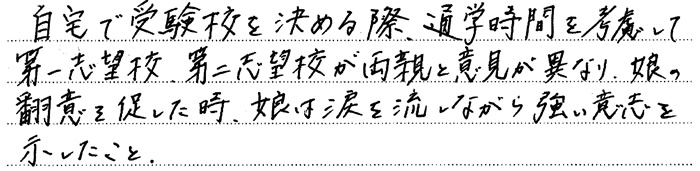 自宅で受験校を決める際、通学時間を考慮して
第一志望校、第二志望校が両親と意見が異なり、娘の
翻意を促した時、娘は涙を流しながら強い意志を
示したこと。